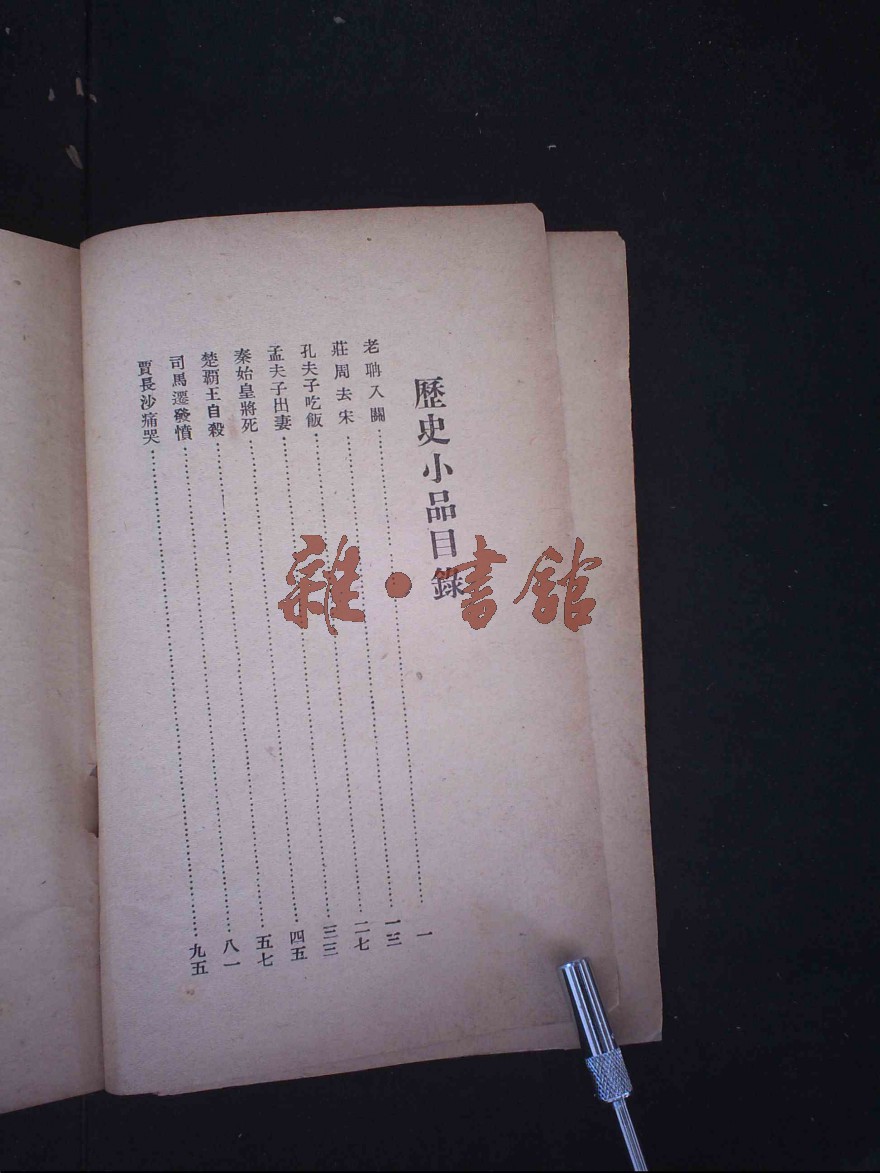 歷史小品目錄
老聃入關……一
莊周去宋……一三
孔夫子吃飯……二七
孟夫子出妻……三三
秦始皇將死……四五
楚霸王自殺……五七
司馬遷發憤……八一
賈長沙痛哭……九五
雜·書館